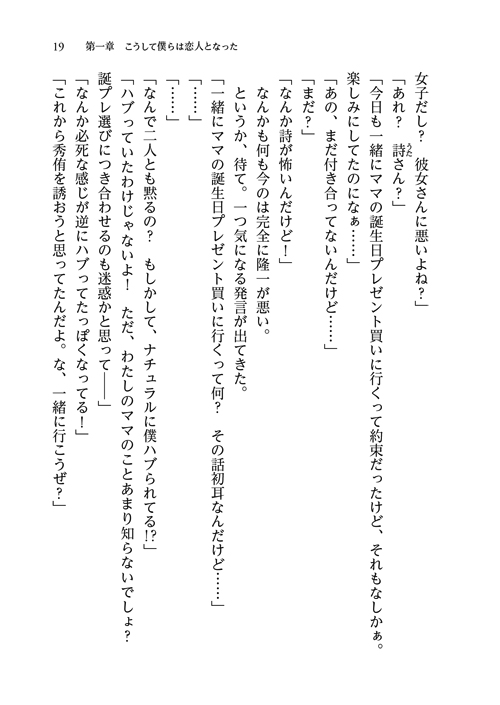 19　第一章　こうして僕らは恋人となった
女子だし？　彼女さんに悪いよね？」
「あれ？　詩さん？」
うた
「今日も一緒にママの誕生日プレゼント買いに行くって約束だったけど、それもなしかぁ。
楽しみにしてたのになぁ……」
「あの、まだ付き合ってないんだけど……」
「まだ？」
「なんか詩が怖いんだけど！」
なんかも何も今のは完全に隆一が悪い。
というか、待て。一つ気になる発言が出てきた。
「一緒にママの誕生日プレゼント買いに行くって何？　その話初耳なんだけど……」
「……」
「……」
「なんで二人とも黙るの？　もしかして、ナチュラルに僕ハブられてる!?」
「ハブっていたわけじゃないよ！　ただ、わたしのママのことあまり知らないでしょ？
誕プレ選びにつき合わせるのも迷惑かと思って――」
「なんか必死な感じが逆にハブってたっぽくなってる！」
「これから秀侑を誘おうと思ってたんだよ。な、一緒に行こうぜ？」